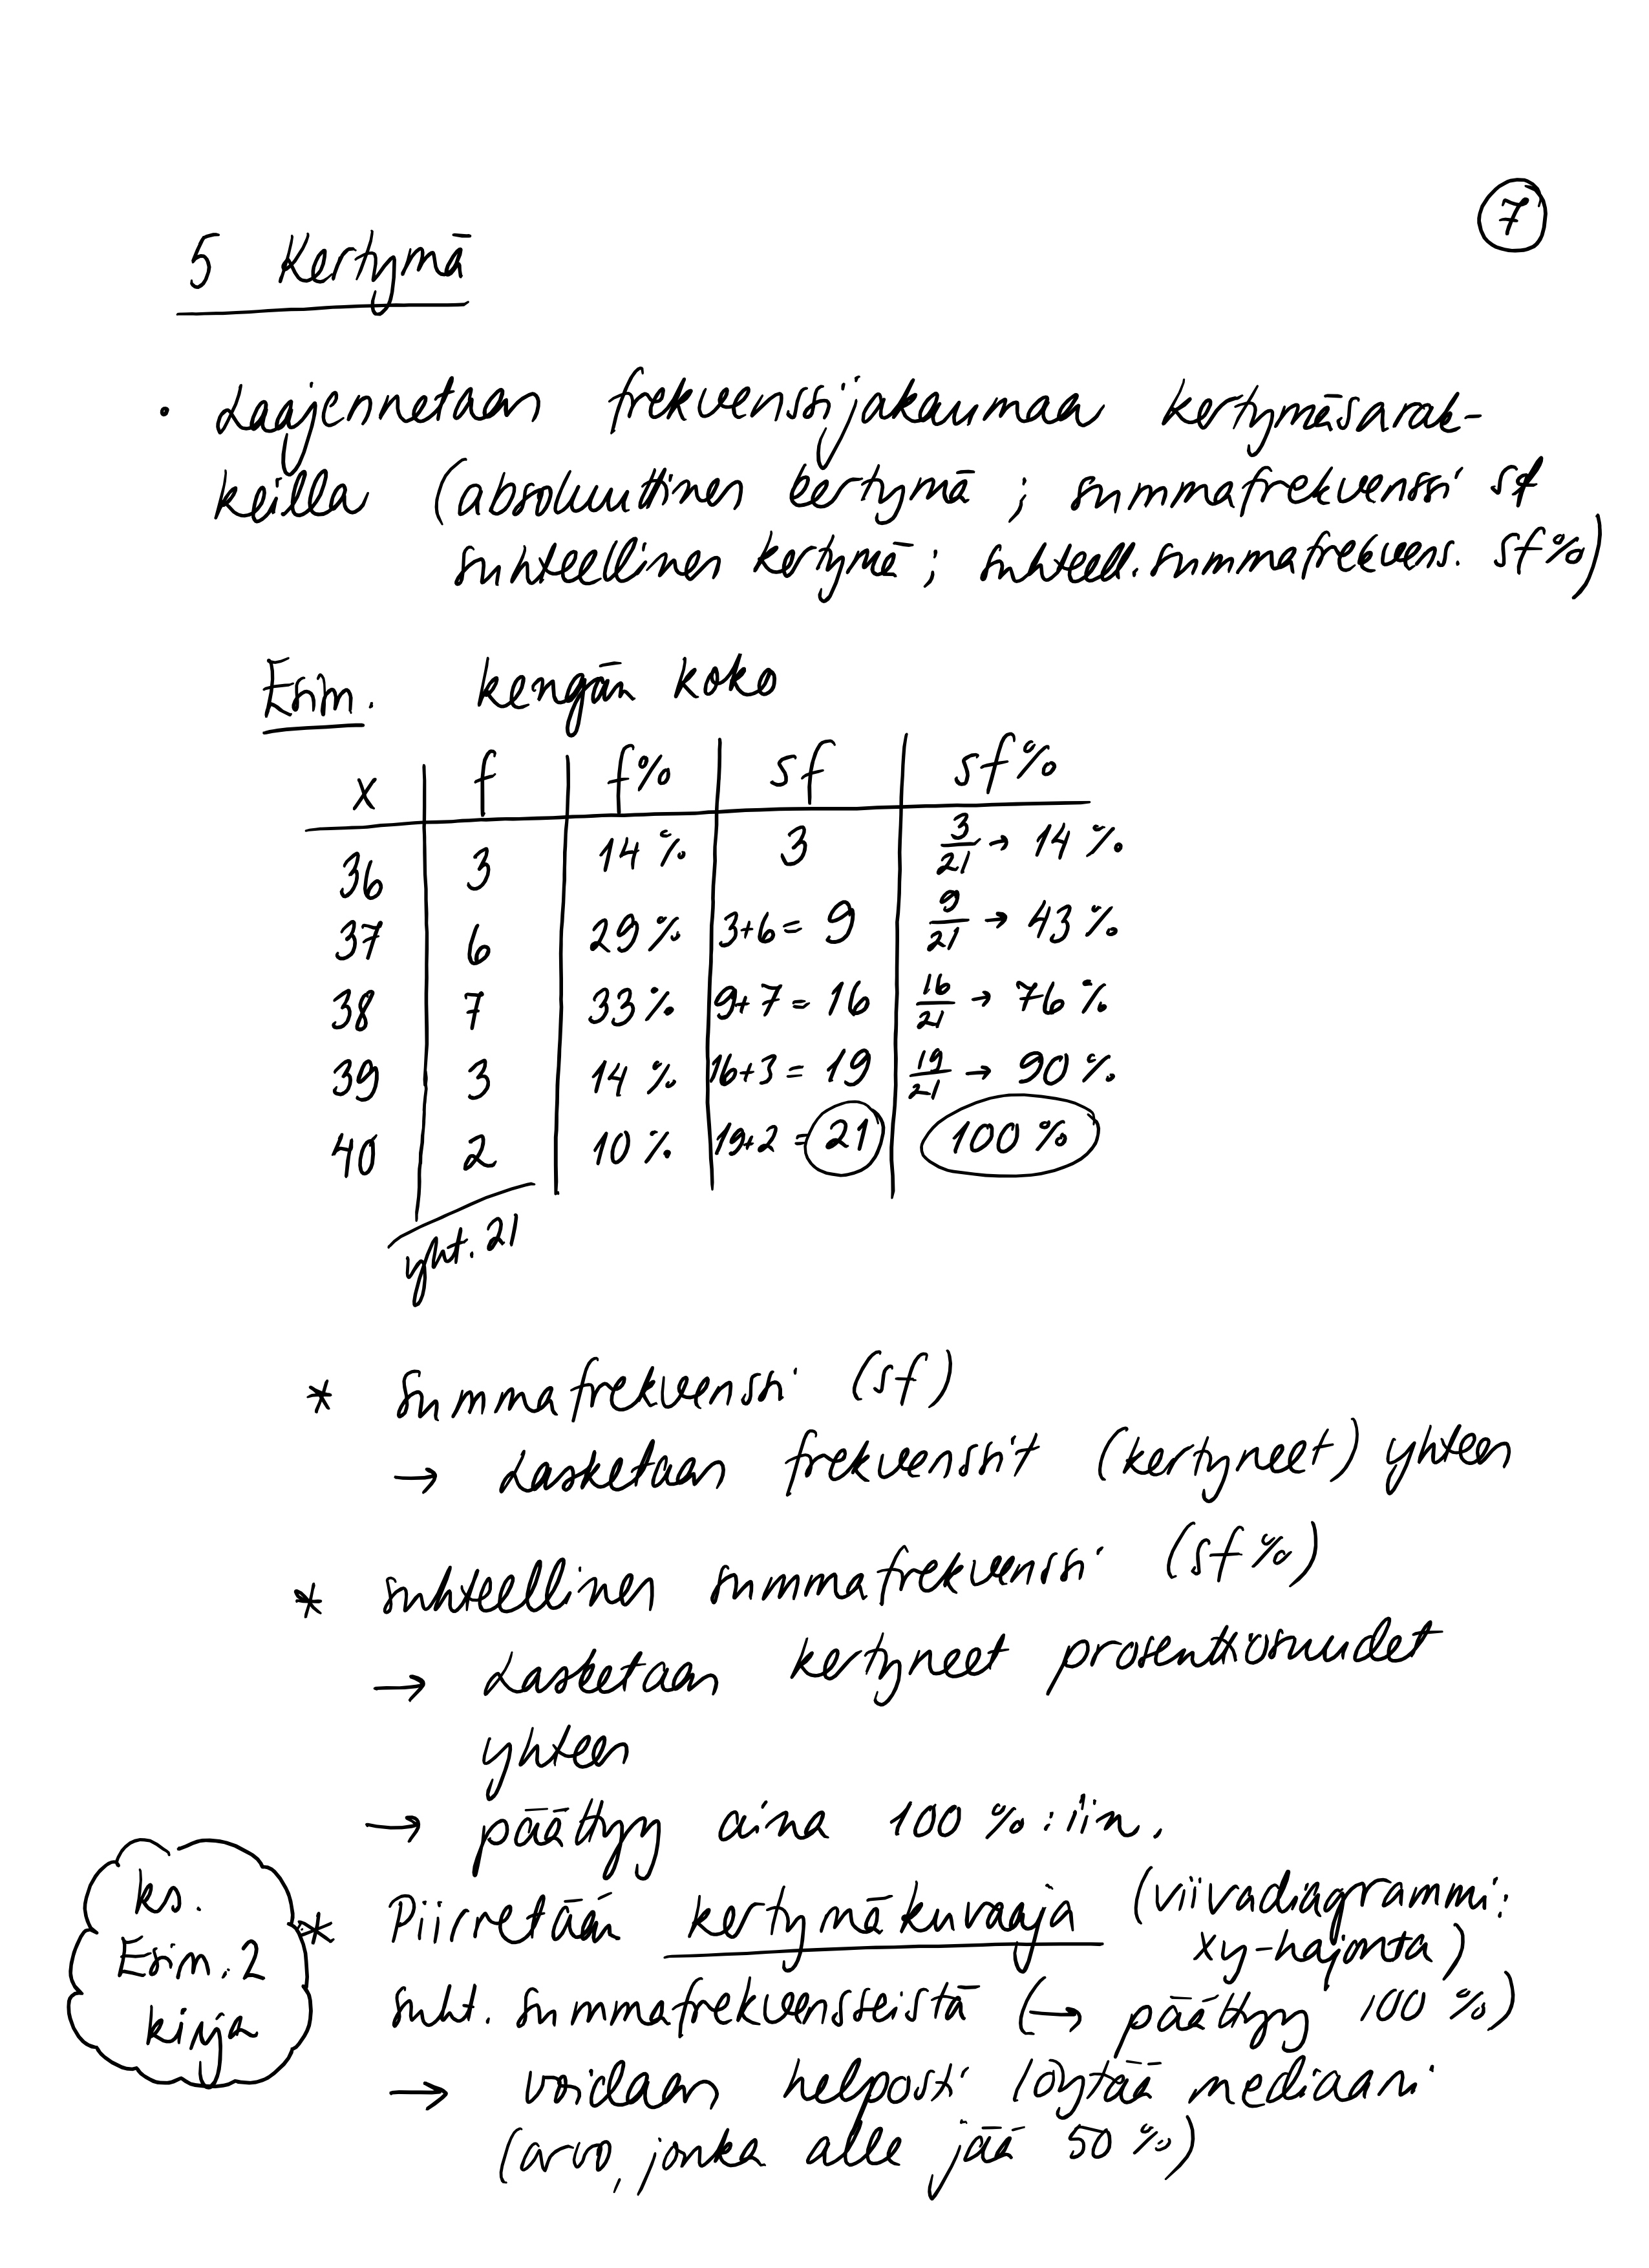 7
5 Kertymä
• Laajennetaan frekvenssijakaumaa kertymäsarak-
keilla (absoluuttinen kertymä ; summafrekvenssi sf
suhteellinen kertymä ; suhteell. summafrekvens. sf%)
Esim. kengän koko
x f f% sf sf%
36 3 14 % 3 3/21 → 14 %
37 6 29 % 3+6 = 9 9/21 → 43 %
38 7 33 % 9+7 = 16 16/21 → 76 %
39 3 14 % 16+3 = 19 19/21 → 90 %
40 2 10 % 19+2 = 21 100 %
yht. 21
* Summafrekvenssi (sf)
→ Lasketaan frekvenssit (kertyneet) yhteen
* suhteellinen summafrekvenssi (sf%)
→ Lasketaan kertyneet prosenttiosuudet
yhteen
→ päättyy aina 100 % :iin.
* Piirretään kertymäkuvaaja (viivadiagrammi:
xy-hajonta)
suht. summafrekvensseistä (→ päättyy 100 %)
→ voidaan helposti löytää mediaani
(arvo, jonka alle jää 50 %)
ks.
Esim. 2
kirja